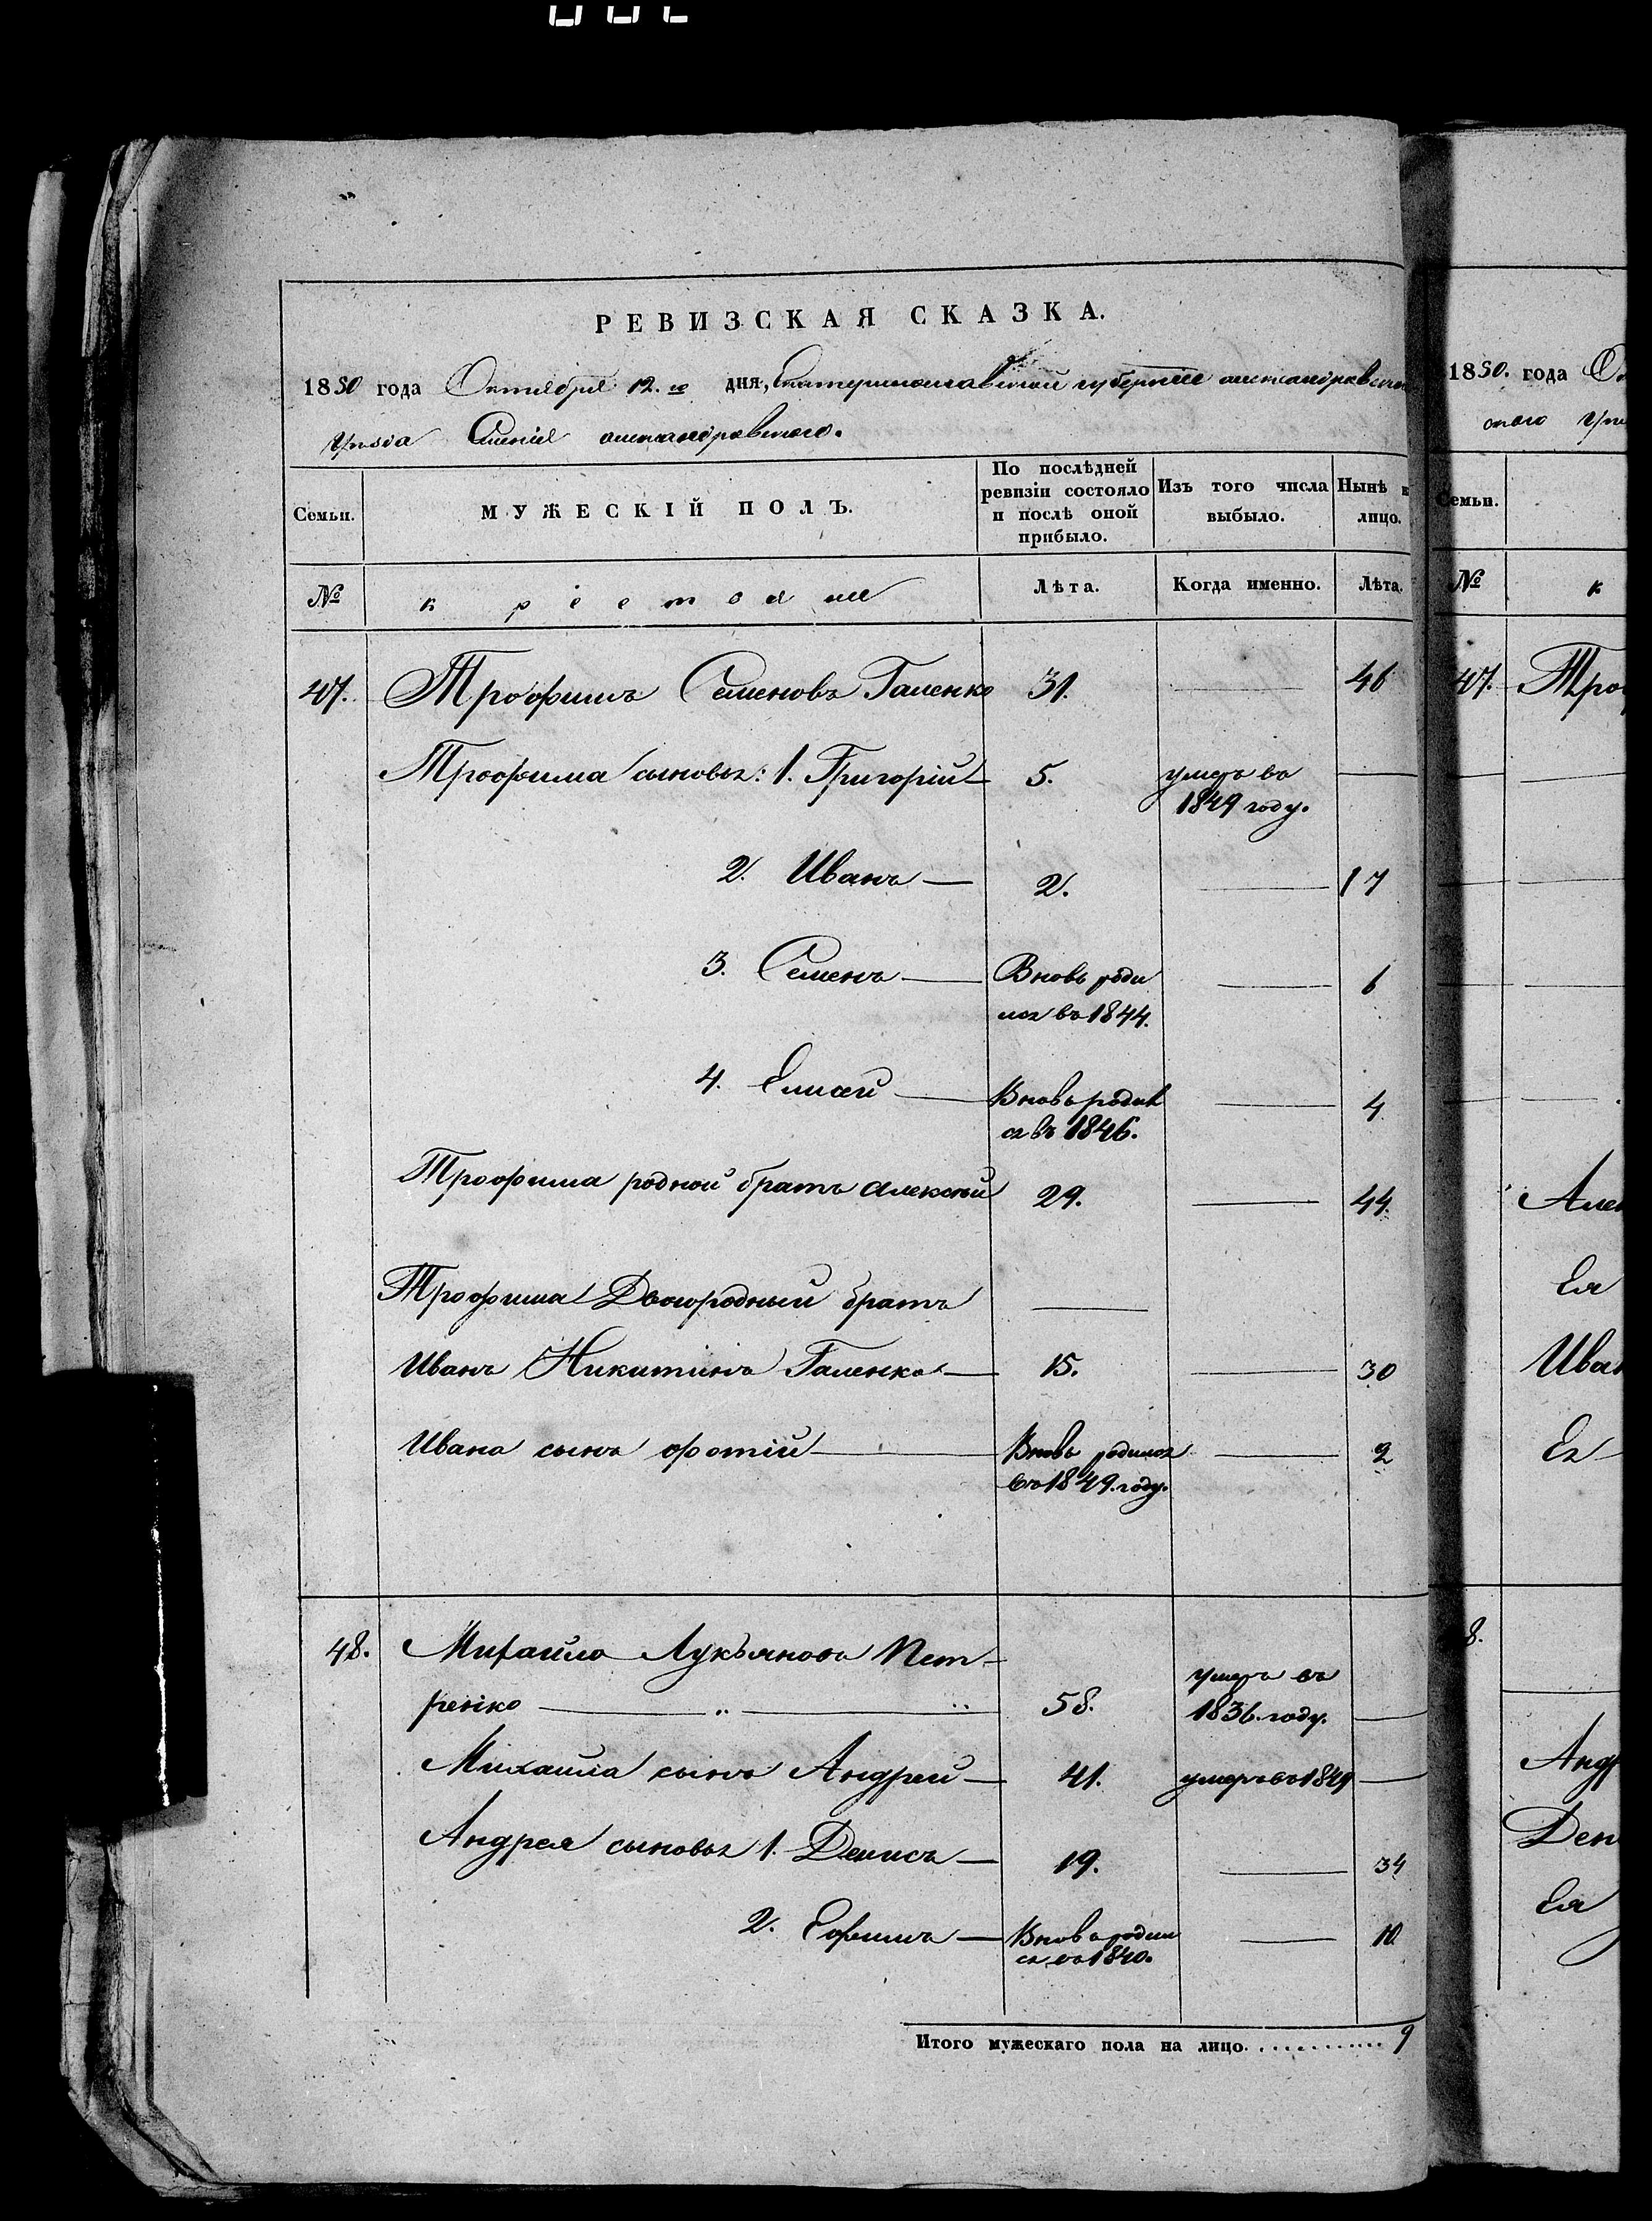 РЕВИЗСКАЯ СКАЗКА.
1850 года Октября 12.го дня, Екатеринославской губерніи александровска
уезда Имения александровского.
Семьи.
МУЖЕСКІЙ ПОЛЪ.
По послѣдней ревизіи состояло и послѣ оной прибыло.
Изъ того числа выбыло.
Нынѣ на лицо.
№ крестьяне Лѣта. Когда именно. Лѣта.
47. Трофимъ Семеновъ Галенко 31. 46
Трофима сыновья: 1. Григорій 5. умеръ въ
1849 году.
2. Иванъ 2. 17
3. Семенъ Вновь роди 6
лся въ 1844.
4. Елисей Вновь родил 4
ся въ 1846.
Трофима родной братъ алексей 29. 44.
Трофима Двоюродный братъ
Иванъ Никитинъ Галенко 15. 30
Ивана сынъ фотій Вновь родился 2
въ 1849. году.
48. Михайло Лукьяновъ Пет-
ренко 58. умеръ въ
1836. году.
Михаила сынъ Андрей 41. умеръ въ 1849
Андрея сыновья 1. Денисъ 19. 34
2. Ефимъ Вновь родил 10
ся въ 1840.
Итого мужескаго пола на лицо. 9
1850. года
ского
Семьи.
№ к
47. Троф
Алек
Ея
Иван
Ея
8.
Андр
Ден
Ея